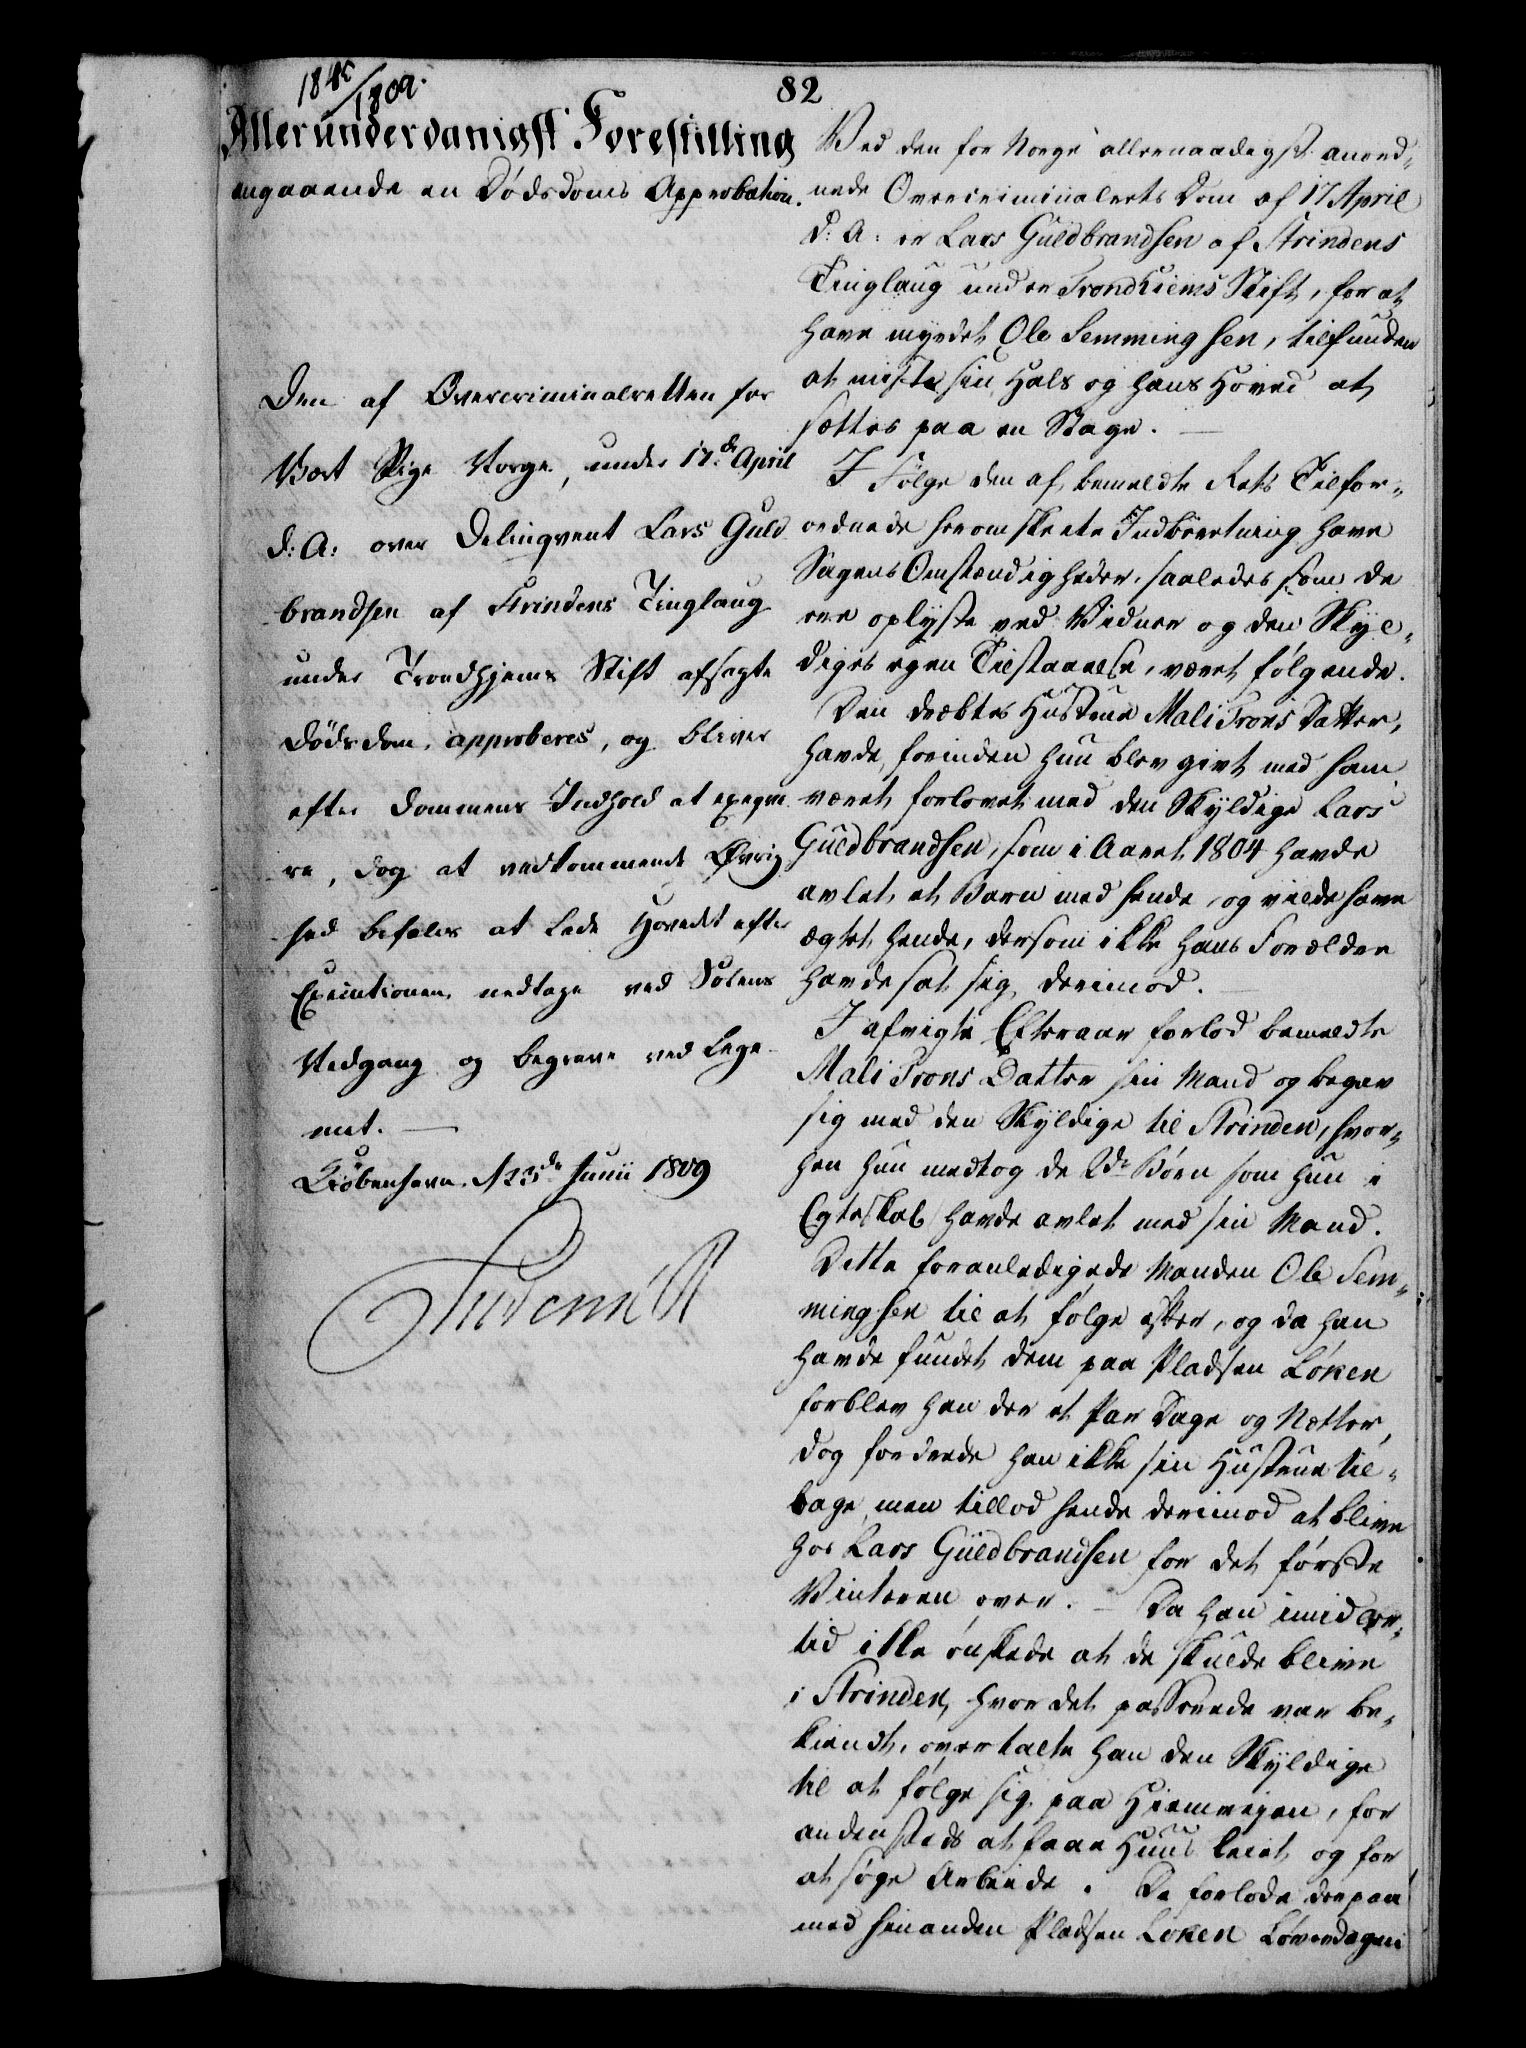 1840/1809.
82
Allerunderdanigst Forestilling
angaaende en Dödsdoms Approbation.
Den af Overcriminalretten for
Vort Rige Norge, under 17de April
d: A: over Delinqvent Lars Guld
brandsen af Strindens Tinglaug
under Trondhjems Stift afsagte
Dödsdom, approberes, og bliver
efter Dommens Indhold at exeqve
re, dog at vedkommende Øvrig
hed befales at lade Hovedet efter
Executionen nedtage ved Solens
Nedgang og begrave ved Lege
met. —
Kiöbenhavn, d 23de Junii 1809
Frederik R
Ved den for Norge allernaadigst anord-
nede Overcriminalrets Dom af 17 April
d: A: er Lars Güldbrandsen af Strindens
Tinglaug under Trondhiems Stift, for at
have myrdet Ole Semmingsen, tilfunden
at miste sin Hals og hans Hoved at
sættes paa en Stage. —
I Fölge den af bemeldte Rets Tilfor-
ordnede herom skeete Indberetning have
Sagens Omstændigheder, saaledes som de
ere oplyste ved Vidner og den Skyl-
diges egen Tilstaaelse, været fölgende.
Den dræbtes Hustrue Mali Trons Datter,
havde, forinden hun blev givt med ham
været forlovet med den Skyldige Lars
Güldbrandsen, som i Aaret 1804 havde
avlet et Barn med hende, og vilde have
ægtet hende, dersom ikke hans Forældre
havde sat sig derimod.
I afvigte Efteraar forlod bemeldte
Mali Trons Datter sin Mand og begav
sig med den Skyldige til Strinden, hvor-
hen hun medtog de 2de Börn som hun i
Egteskab havde avlet med sin Mand.
Dette foranledigede Manden Ole Sem-
mingsen til at fölge efter, og da han
havde fundet dem paa Pladsen Löken
forblev han der et Par Dage og Nætter,
dog fordrede han ikke sin Hustrue til-
bage, men tillod hende derimod at blive
hos Lars Güldbrandsen for det förste
Vinteren over. — Da han imidler-
tid ikke önskede at de skulde blive
i Strinden, hvor det passerede var be-
kiendt, overtalte han den Skyldige
til at fölge sig paa Hiemveien, for
andensteds at faae Huus leiet og for
at söge Arbeide. De forlode derpaa
med hinanden Pladsen Löken Löverdagen